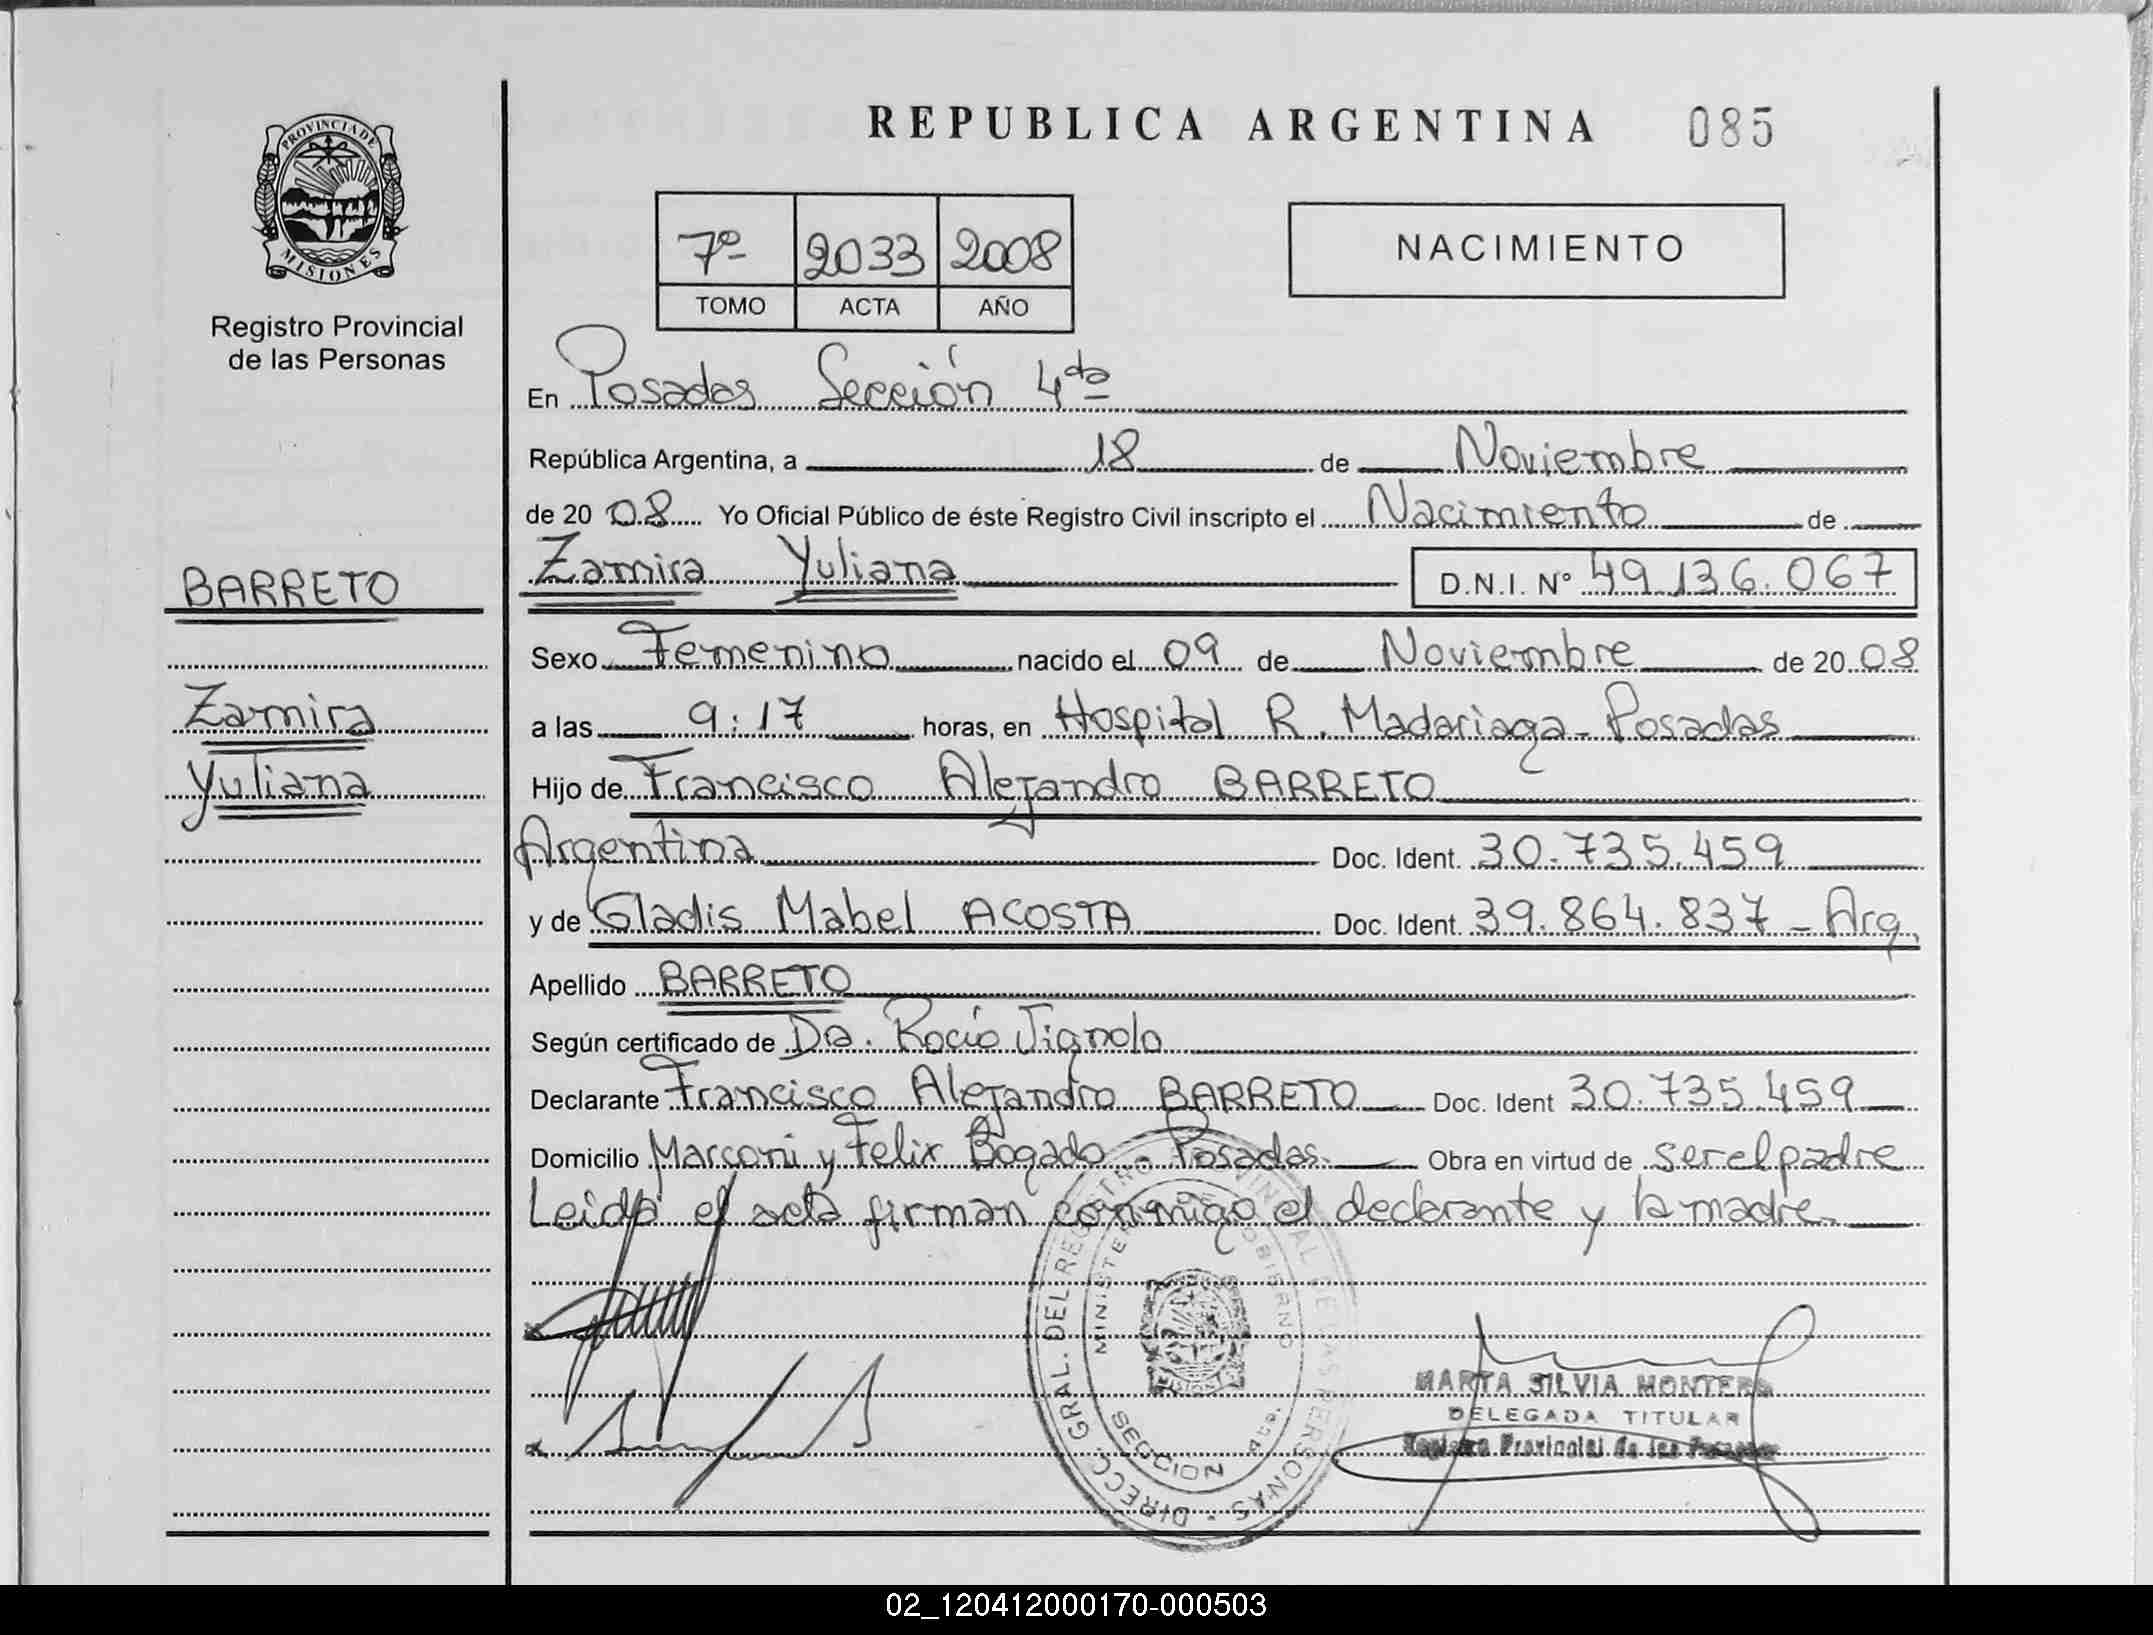 REPUBLICA ARGENTINA 085
PROVINCIA DE
MISIONES
Registro Provincial
de las Personas
7º 2033 2008
TOMO ACTA AÑO
NACIMIENTO
En Posadas Sección 4ta
República Argentina, a 18 de Noviembre
de 20 08 Yo Oficial Público de éste Registro Civil inscripto el Nacimiento de
Zamira Yuliana D.N.I. Nº 49.136.067
BARRETO
Zamira
Yuliana
Sexo Femenino nacido el 09 de Noviembre de 20 08
a las 9:17 horas, en Hospital R. Madariaga - Posadas
Hijo de Francisco Alejandro BARRETO
Argentina Doc. Ident. 30.735.459
y de Gladis Mabel ACOSTA Doc. Ident. 39.864.837 - Arg.
Apellido BARRETO
Según certificado de Dra. Rocío
Declarante Francisco Alejandro BARRETO Doc. Ident 30.735.459
Domicilio Marconi y Felix Bogado - Posadas. Obra en virtud de ser el padre
Leida el acta firman conmigo el declarante y la madre.
DIRECC. GRAL. DEL REGISTRO PROVINCIAL DE LAS PERSONAS
MINISTERIO DE GOBIERNO
SECCION 4ta.
MARTA SILVIA MONTERO
DELEGADA TITULAR
Registro Provincial de las Personas
02_120412000170-000503